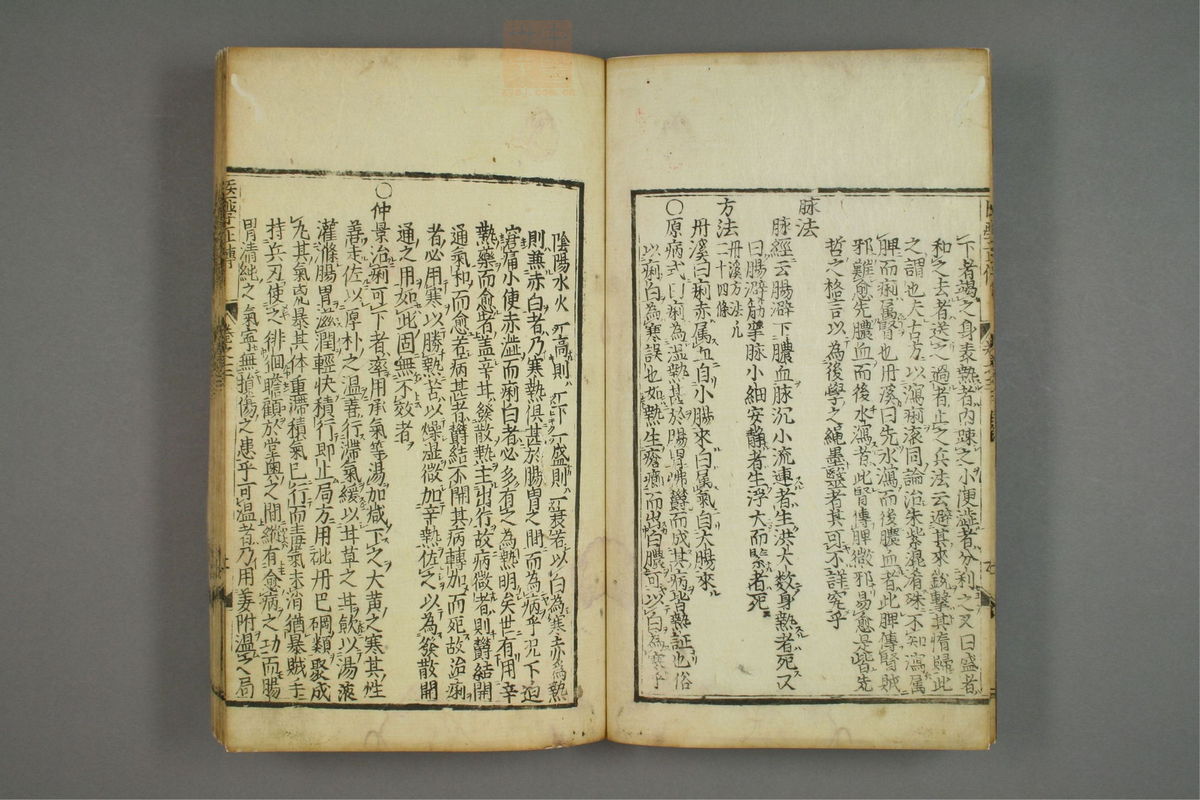 下者竭之身表熱者内踈之小便澁者分利之又曰盛者
和之去者送之過者止之兵法云避其來鋭擊其惰歸此
之謂也大古方以瀉痢滚同論治朱紫混淆殊不知瀉属
脾而痢属腎也丹溪曰先水瀉而後膿血者此脾傳腎賊
邪難愈先膿血而後水瀉者此腎傳脾微邪易愈是皆先
哲之格言以為後學之繩墨醫者其可不詳究乎
脉法
脉經云腸澼下膿血脉沉小流連者生洪大数身熱者死又
曰腸澼筋攣脉小細安静者生浮大而緊者死
方法
丹溪方法凡
二十四條
丹溪曰痢赤属血自小腸來白属氣自大腸來
〇原病式曰痢為湿熱甚於腸胃怫欝而成其病皆熱証也俗
以痢白為寒誤也如熱生瘡癤而出白膿可以白為寒乎
陰陽水火一高則一下一盛則一衰若以白為寒赤為熱
則兼赤白者乃寒熱俱甚於腸胃之間而為病乎况下迫
窘痛小便赤澁而痢白者必多有之為熱明矣世有用辛
熱藥而愈者盖辛甘發散熱主出行故病微者則欝結開
通氣和而愈若病甚者欝結不開其病轉加而死故治痢
者必用寒以勝熱苦以燥湿微加辛熱佐之以為發散開
通之用如此固無不效者
〇仲景治痢可下者率用承氣等湯加减下之大黄之寒其性
善走佐以厚朴之温善行滞氣緩以甘草之甘飲以湯液
灌滌腸胃滋潤輕快積行即止局方用砒丹巴硇類聚成
丸其氣㐫暴其体重滞積氣已行而毒氣未消猶暴賊手
持兵刃使之徘徊瞻顧於堂奥之間縱有愈病之功而腸
胃清純之氣寧無損傷之患乎可温者乃用姜附温之局